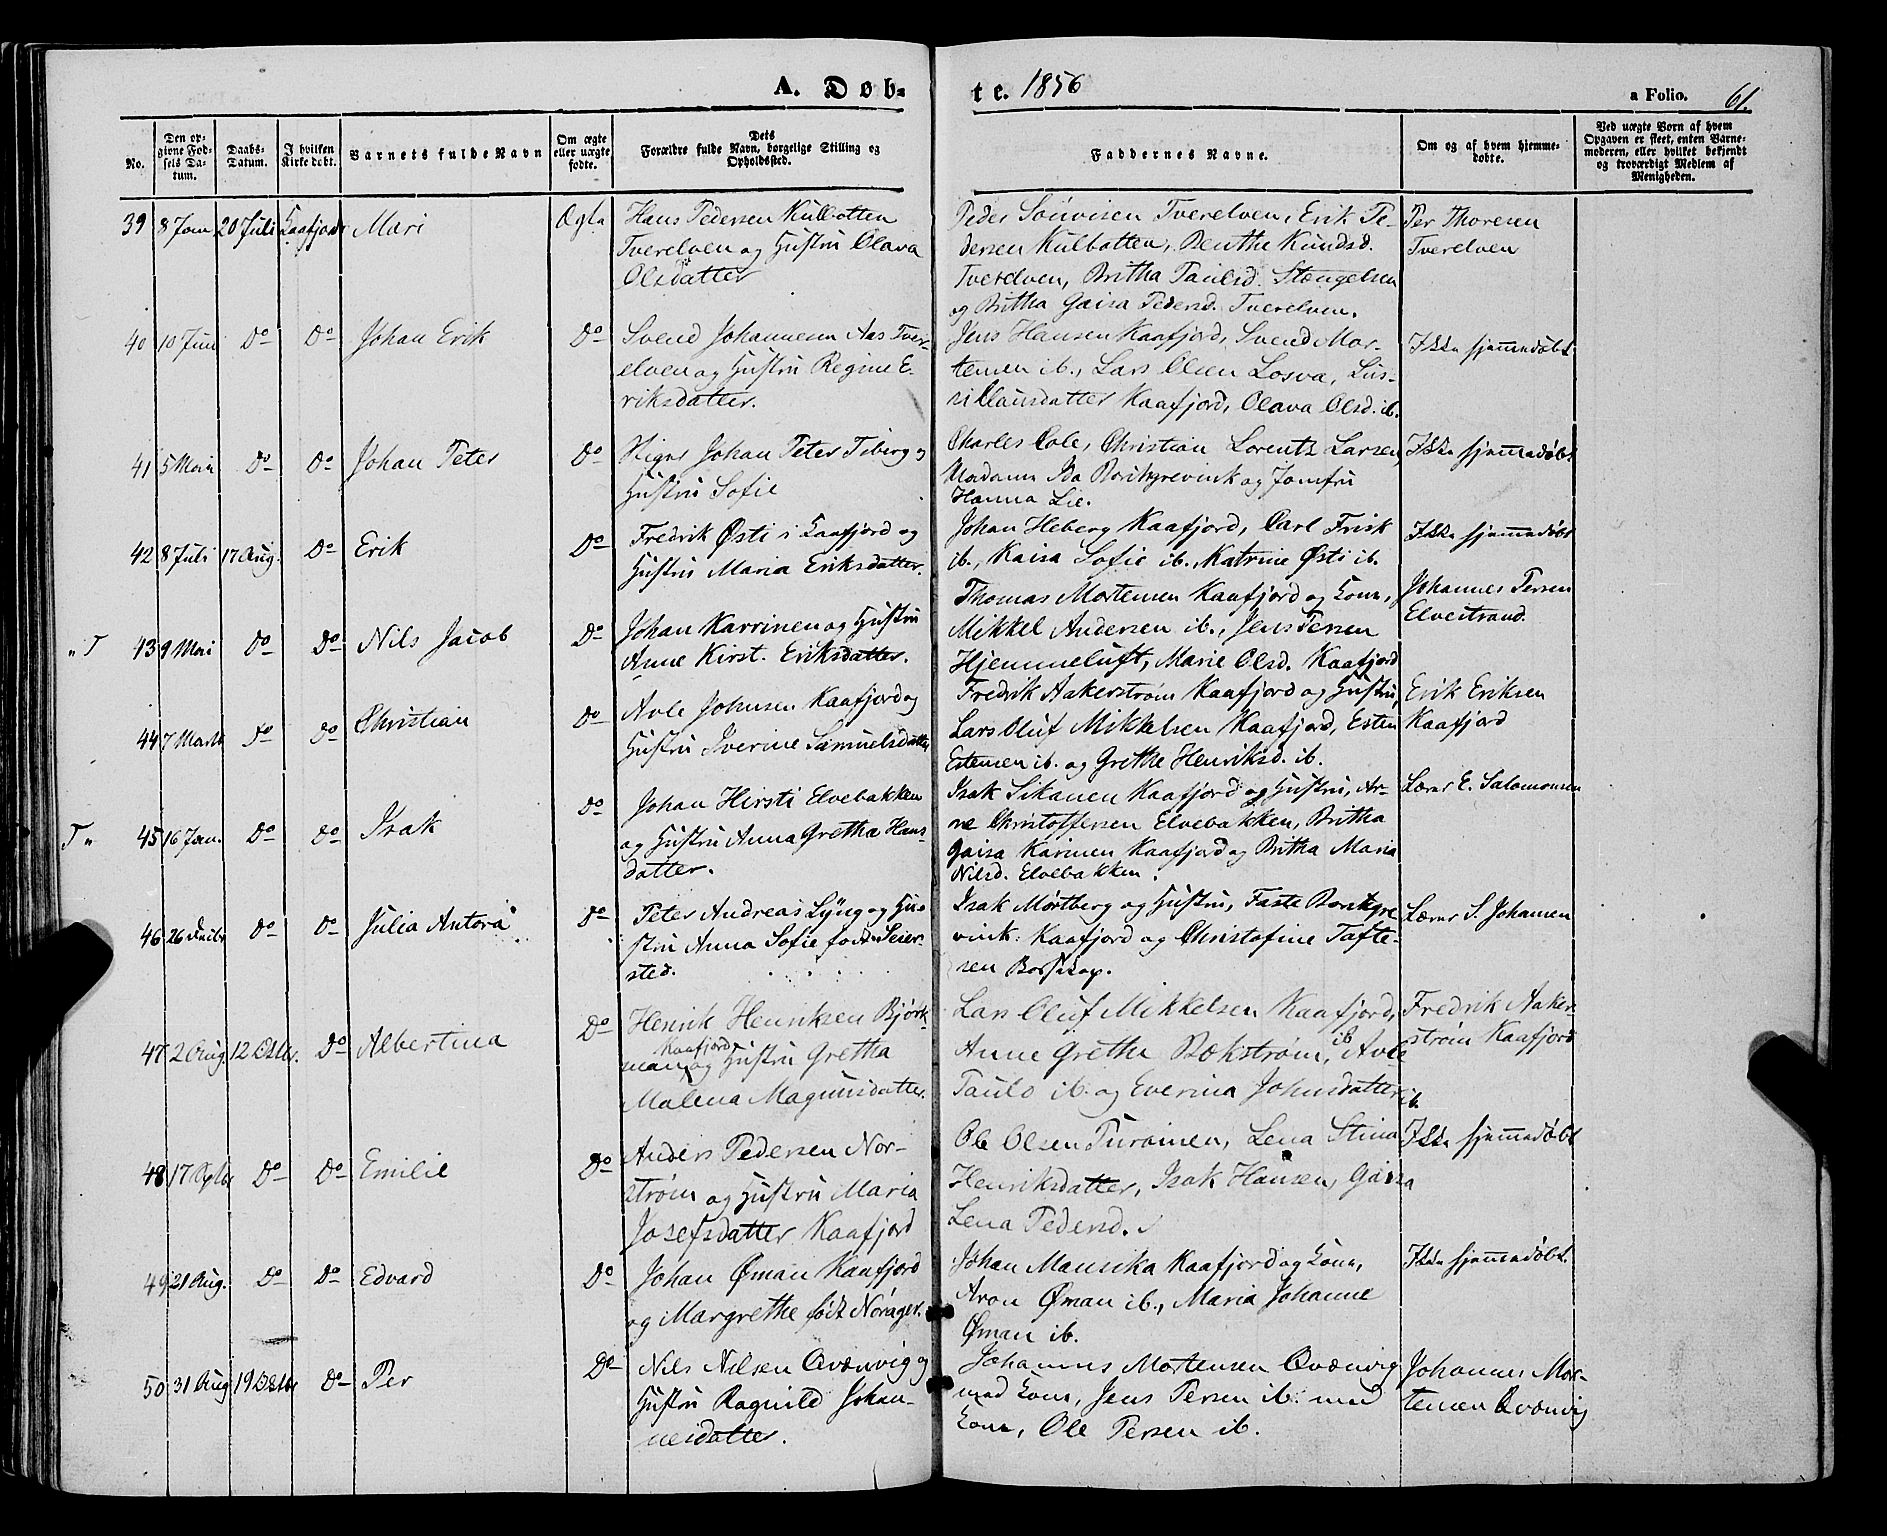 A. Døb-
te. 1856
a Folio. 61.
No.
Den opgivne Fødsels Datum.
Daabs-Datum.
I hvilken Kirke døbt.
Barnets fulde Navn
Om ægte eller uægte fødte.
Dets Forældre fulde Navn, borgelige Stilling og Opholdssted.
Faddernes Navne.
Om og af hvem hjemme-døbte.
Ved uægte Børn af hvem Opgaven er skeet, enten Barne-moderen, eller hvilket bekjendt og troværdigt Medlem af Menigheden.
39 8 Jan 20 Juli Kaafjord Mari Ægte
Hans Pedersen Kulbotten
Tverelven og Hustru Olava
Olsdatter
Peder Tverelven, Erik Pe-
dersen Kulbotten, Benthe Knudsd.
Tverelven, Britha Paulsd. Stengelsen
og Britha Gaisa Pedersd. Tverelven.
Per Thoresen
Tverelven
40 10 Juni Do Do Johan Erik Do
Svend Johannesen Aas Tver-
elven og Hustru Regine E-
riksdatter.
Jens Hansen Kaafjord, Svend Mor-
tensen ib., Lars Olsen Losva, Lus-
si Clausdatter Kaafjord, Olava Olsd. ib.
Ikke hjemmedøbt.
41 5 Mai Do Do Johan Peter Do
Johan Peter Tiberg og
Hustru Sofie
Charles Cole, Christian Lorentz Larsen,
Madame Ida Borchgrevink og Jomfru
Hanna Lie.
Ikke hjemmedøbt
42 8 Juli 17 Aug. Do Erik Do
Fredrik Østi i Kaafjord og
Hustru Maria Eriksdatter.
Johan Heberg Kaafjord, Carl Frisk
ib., Kaisa Sofie ib., Katrine Østi ib.
Ikke hjemmedøbt
"T 43 9 Mai Do Do Nils Jacob Do
Johan Karrinen og Hustru
Anne Kirst. Eriksdatter.
Thomas Mortensen Kaafjord og Kone,
Mikkel Andersen ib., Jens Persen
Hjemmeluft, Marie Olsd. Kaafjord
Johannes Persen
Elvestrand.
44 7 Marts Do Do Christian Do
Avle Johnsen Kaafjord og
Hustru Iverine Samuelsdatter
Fredrik Aakerstrøm Kaafjord og Hustru,
Lars Oluf Mikkelsen Kaafjord, Esten
Estensen ib. og Grethe Henriksd. ib.
Erik Eriksen
Kaafjord
T" 45 16 Jan. Do Do Isak Do
Johan Hirsti Elvebakken
og Hustru Anna Gretha Hans
datter.
Isak Sikanen Kaafjord og Hustru, Ar-
ne Christoffersen Elvebakken, Britha
Gaisa Karinen Kaafjord og Britha Maria
Nilsd. Elvebakken.
Lærer E. Salomonsen
46 26 Do Do Julia Antora Do
Peter Andreas Lyng og Hu-
stru Anna Sofie født Seier-
sted.
Isak Mørtberg og Hustru, Faste Borchgre
vink Kaafjord og Christofine Tofte-
sen Bossekop.
Lærer S. Johansen
47 2 Aug 12 Octbr. Do Albertina Do
Henrik Henriksen Bjørk-
man, Kaafjord og Hustru Gretha
Malena Magnusdatter.
Lars Oluf Mikkelsen Kaafjord,
Anne Grethe Bækstrøm, ib Avle
Paulo ib. og Everina Johnsdatter ib.
Fredrik Aaker
strøm Kaafjord
48 17 Do Do Emilie Do
Anders Pedersen Nor-
strøm og Hustru Maria
Josefsdatter Kaafjord
Ole Olsen Turoinen, Lena Stina
Henriksdatter, Isak Hansen, Gaisa
Lena Pedersd.
Ikke hjemmedøbt
49 21 Aug. Do Do Edvard Do
Johan Øman Kaafjord
og Margrethe født Norager.
Johan Mansika Kaafjord og Kone,
Aron Øman ib., Maria Johanne
Øman ib.
Ikke hjemmedøbt.
50 31 Aug 19 Octbr Do Per Do
Nils Nilsen Qvænvig og
Hustru Ragnild Johan-
nesdatter.
Johannes Mortensen Qvænvig
med Kone, Jens Persen ib. med
Kone, Ole Persen ib.
Johannes Mor-
tensen Qvænvig